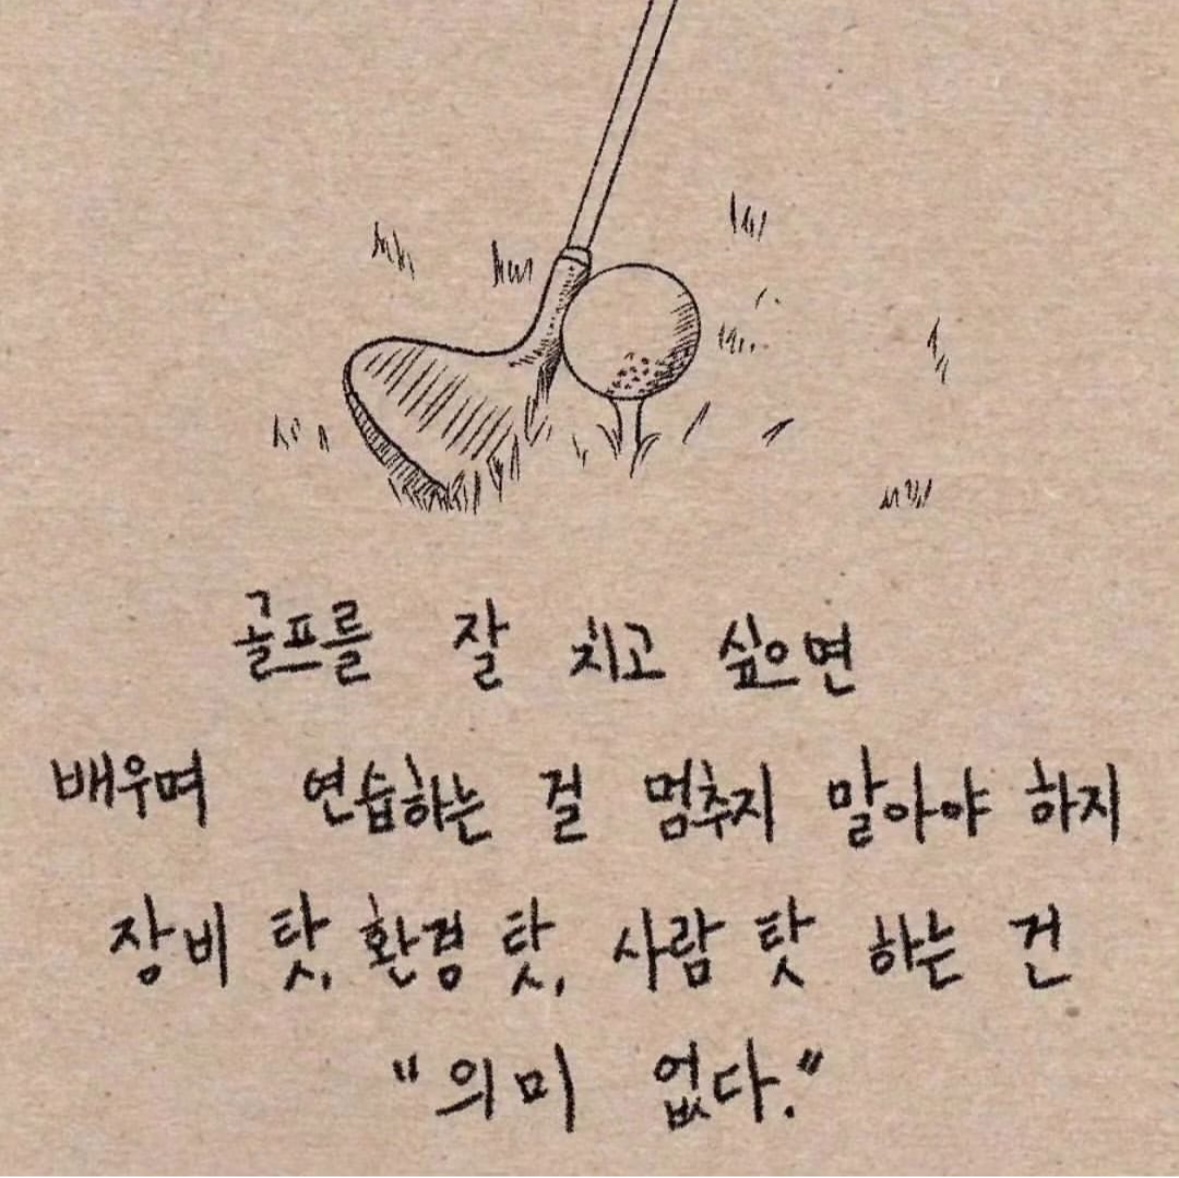 골프를 잘 치고 싶으면
배우며 연습하는 걸 멈추지 말아야 하지
장비 탓, 환경 탓, 사람 탓 하는 건
"의미 없다."